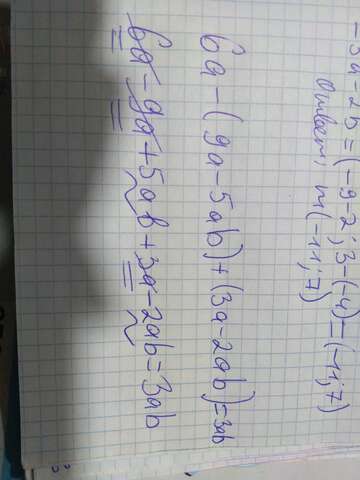 -3a-2b=(-9-2; 3-(-4)=(-11;7)
Ответ; m(-11;7)
6a-(9a-5ab)+(3a-2ab)=3ab
6a-9a+5ab+3a-2ab=3ab